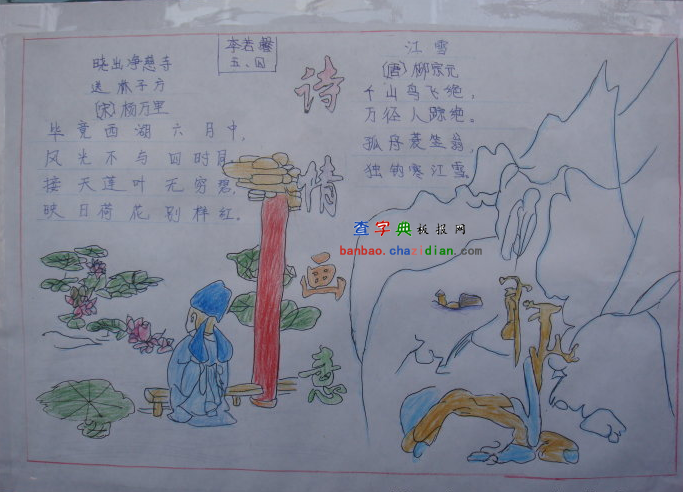 晓出净慈寺
送林子方
(宋)杨万里
毕竟西湖六月中,
风光不与四时同,
接天莲叶无穷碧,
映日荷花别样红。
李若馨
五、四
诗情画意
江雪
(唐)柳宗元
千山鸟飞绝,
万径人踪绝。
孤舟蓑笠翁,
独钓寒江雪。
查字典板报网
banbao.chazidian.com